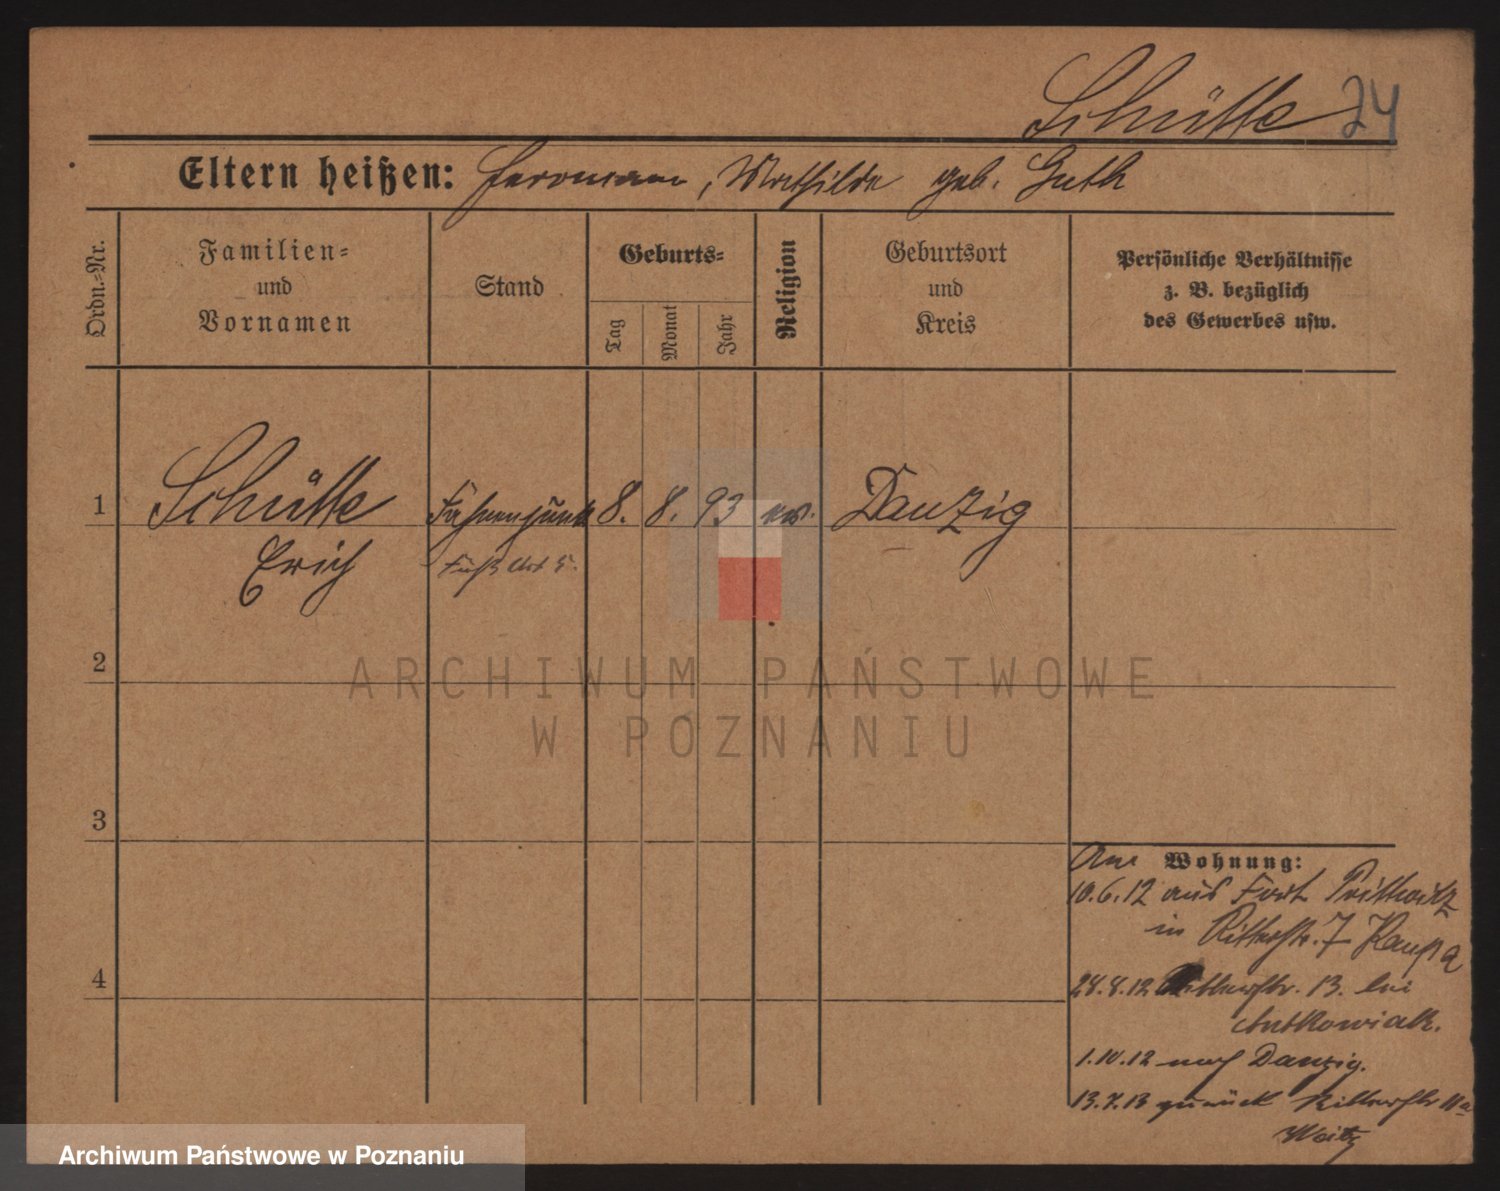 Schütte 24
Eltern heißen: Hermann, Mathilde geb. Guth
Ordn.-Nr.
Familien-
und
Vornamen
Stand
Geburts-
Tag
Monat
Jahr
Religion
Geburtsort
und
Kreis
Persönliche Verhältnisse
z. B. bezüglich
des Gewerbes usw.
1 Schütte Fahnenjunk 8. 8. 93 ev. Danzig
Erich Fuß Art 5.
2
3
4
Am Wohnung:
10.6.12 aus Fort Prittwitz
in Ritterstr. 7 Kaupa
28.8.12 Ritterstr. 13. bei
Antkowiak.
1.10.12 nach Danzig.
13.7.13 zurück Ritterstr 11a
Weitz
ARCHIWUM PAŃSTWOWE
W POZNANIU
Archiwum Państwowe w Poznaniu